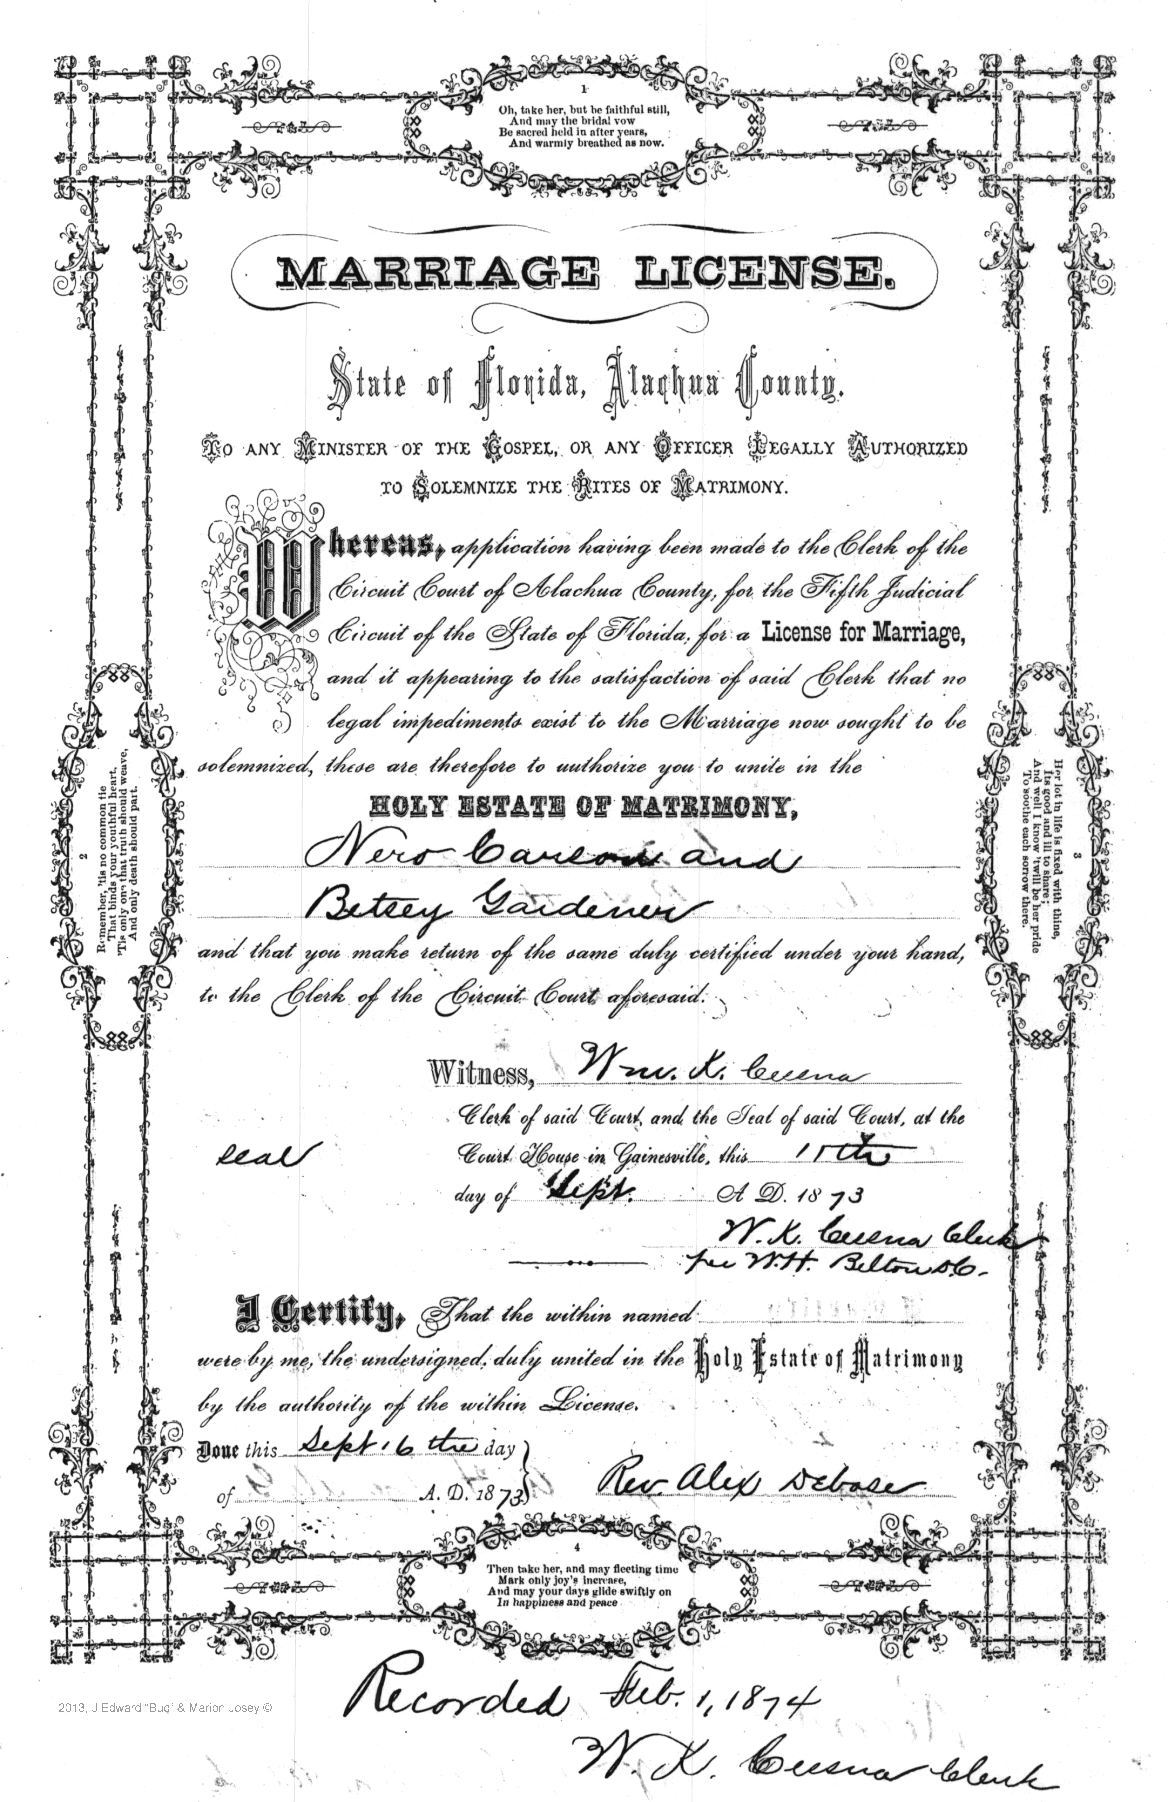 1
Oh, take her, but be faithful still,
And may the bridal vow
Be sacred held in after years,
And warmly breathed as now.
MARRIAGE LICENSE.
State of Florida, Alachua County.
TO ANY MINISTER OF THE GOSPEL, OR ANY OFFICER LEGALLY AUTHORIZED
TO SOLEMNIZE THE RITES OF MATRIMONY.
Whereas, application having been made to the Clerk of the
Circuit Court of Alachua County, for the Fifth Judicial
Circuit of the State of Florida, for a License for Marriage,
and it appearing to the satisfaction of said Clerk that no
legal impediments exist to the Marriage now sought to be
solemnized, these are therefore to authorize you to unite in the
HOLY ESTATE OF MATRIMONY,
Nero Carson and
Betsey Gardener
and that you make return of the same duly certified under your hand,
to the Clerk of the Circuit Court aforesaid.
2
Remember, 'tis no common tie
That binds your youthful heart,
'Tis only one that truth should weave,
And only death should part.
3
Her lot in life is fixed with thine,
Its good and ill to share;
And well I know 'twill be her pride
To soothe each sorrow there.
Witness, Wm. K. Cessna
Clerk of said Court, and the Seal of said Court, at the
seal
Court House in Gainesville, this 15th
day of Sept. A. D. 1873
W. K. Cessna Clerk
per W. H. Belton D.C.
I Certify, That the within named
were by me, the undersigned, duly united in the Holy Estate of Matrimony
by the authority of the within License.
Done this Sept 16 the day
of A. D. 1873
Rev Alex Debose
4
Then take her, and may fleeting time
Mark only joy's increase,
And may your days glide swiftly on
In happiness and peace
Recorded Feb. 1, 1874
W. K. Cessna Clerk
2013, J Edward "Bug" & Marion Josey ©